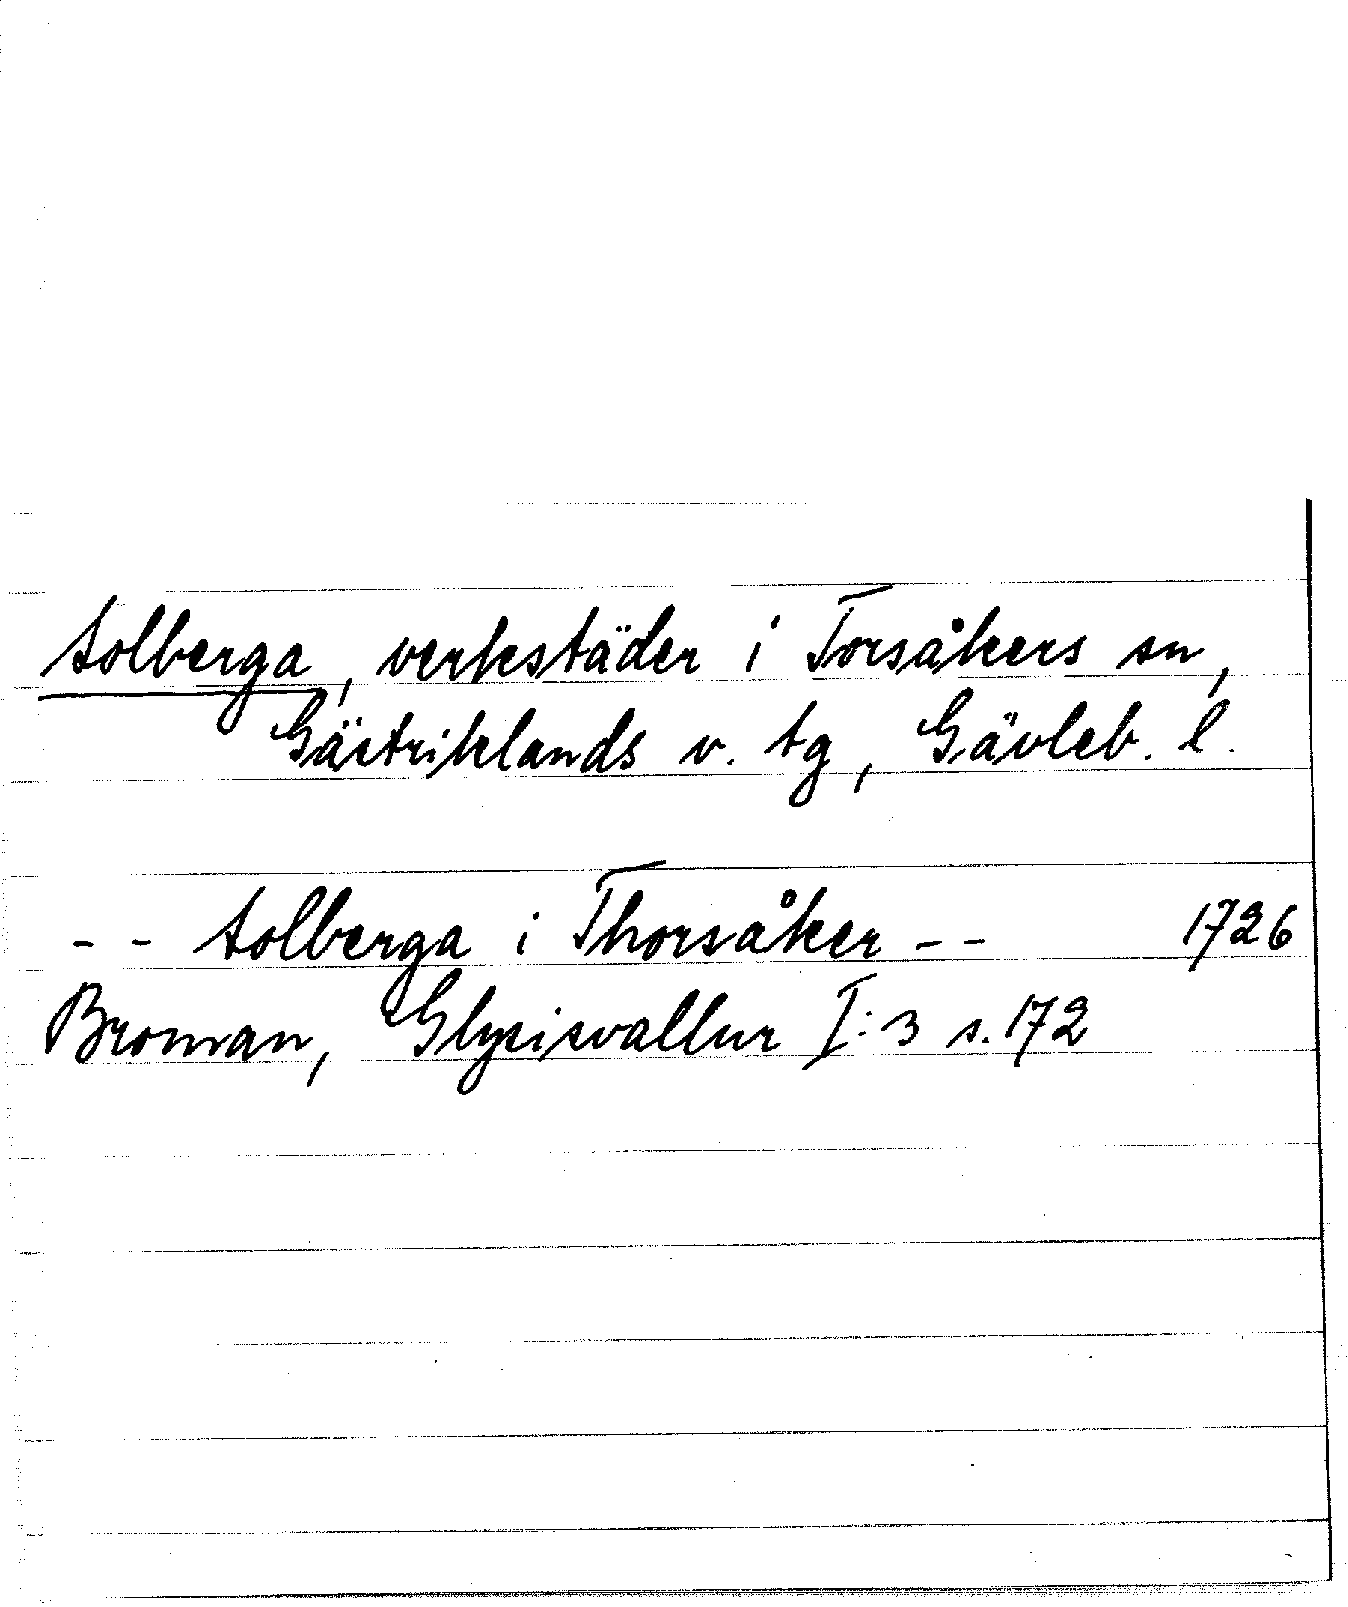 Solberga, verkstäder i Torsåkers sn,
Gästriklands v. tg, Gävleb. l.
- - Solberga i Thorsåker - - 1726
Broman, Glysisvallur I:3 s. 172